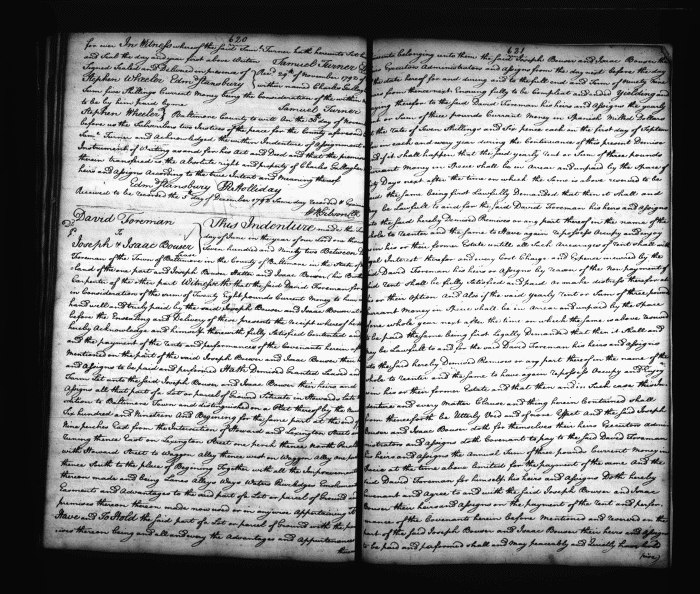 620
for ever In Witness whereof the said Saml. Turner hath hereunto Set his
and Seal the day and year first above Written Samuel Turner
Signed Sealed and Delivered in presence of Recd 29th of November 1792 of
Stephen Wheeler Edwd Stansbury within named Charles Gallagher
Sum five Shillings Current Money being the Consideration of the within
to be by him paid to me Samuel Turner
Stephen Wheeler Baltimore County to wit On the day of November
before us the Subscribers two Justices of the peace for the County aforesaid
Saml. Turner and Acknowledged the within Indenture of Assignment
Instrument of Writing as and for his Act and Deed and that the premises
therein transfered is the Absolute right and property of Charles Gallagher
heirs and Assigns According to the true Intent and Meaning thereof
Edwd Stansbury Holliday
Received to be recorded the day of December 1792 Same day recorded &
Wm Gibson Clk
David Foreman
To
Joseph & Isaac Bower
This Indenture made the
day of June in the year of our Lord one thousand
Seven hundred and Ninety two Between David
Foreman of the Town of Baltimore in the County of Baltimore in the State of
land of the one part and Joseph Bower Hatter and Isaac Bower (his Brother)
Carpenter of the other part Witnesseth that the said David Foreman for
in Consideration of the sum of Twenty Eight pounds Current Money to him in
hand well and truly paid by the said Joseph Bower and Isaac Bower at
before the Ensealing and Delivery of these presents the receipt whereof he doth
hereby Acknowledge and himself therewith fully Satisfied Contented
and the payment of the rents and performances of the Covenants herein after
Mentioned on the part of the said Joseph Bower and Isaac Bower their heirs
and Assigns to be paid and performed Hath Demised Granted Leased and
Farm Let unto the said Joseph Bower and Isaac Bower their heirs and
Assigns all that part of a Lot or parcel of Ground Situate in Howards late
ition to Baltimore Town and distinguished on a Plat thereof by the
Six hundred and Nineteen And Beginning for the same part at the end of
Nine perches East from the Intersection of Howard and Lexington Street and
running thence East on Lexington Street one perch thence North
with Howard Street to Waggon Alley thence west on Waggon Alley one perch
thence South to the place of Beginning Together with all the improvements
thereon made and being Lanes Alleys Ways Waters Privileges
ments and Advantages to the said part of a Lot or parcel of Ground and
premises thereon made now used or in any wise appertaining To
Have and To Hold the said part of a Lot or parcel of Ground with the
ions thereon being and all and every the Advantages and Appurtenances
there
621
ments belonging unto them the said Joseph Bower and Isaac Bower their
Executors Administrators and Assigns from the day next before the day
the date hereof for and during and to the full end and Term of Ninety Nine
years from thence next Ensuing fully to be Compleat and ended Yielding and
paying therefor to the said David Foreman his heirs and Assigns the yearly
or Sum of three pounds Current Money in Spanish Milled Dollars
at the rate of Seven Shillings and Six pence each on the first day of September
in each and every year during the Continuance of this present Demise
And if it Shall happen that the said yearly rent or Sum of three pounds
Current Money in Specie Shall be in Arrear and unpaid by the Space of
ty Days next After the time on which the Same is above reserved to be
paid the same being first Lawfully Demanded that then it Shall and
may be Lawfull to and for the said David Foreman his heirs and Assigns
into the said hereby Demised Premises or any part thereof in the name of the
whole to Reenter and the same to Have again repossess Occupy and enjoy
in his or their former Estate untill all Such Arrearages of rent Shall with
Interest therefor and every Cost Charge and Expence incurred by the
said David Foreman his heirs or Assigns by reason of the Non payment of
said rent Shall be fully Satisfied and paid or make distress therefor at
or their Option And Also if the said yearly rent or Sum of three pounds
Current Money in Specie Shall be in Arrear and unpaid by the Space
of one whole year next after the time on which the Same is above reserved
to be paid the same being first legally Demanded that then it Shall and
may be Lawfull to and for the said David Foreman his heirs and Assigns
into the said hereby Demised Premises or any part thereof in the name of the
whole to Reenter and the same to have again repossess Occupy and enjoy
in his or their former Estate and that then and in Such case this
Indenture and every Matter Clause and thing herein Contained Shall
from thenceforth be Utterly Void and of none Effect And the said Joseph
Bower and Isaac Bower doth for themselves their heirs Executors Admin-
istrators and Assigns doth Covenant to pay to the said David Foreman
his heirs and Assigns the Annual Sum of three pounds Current Money in
Specie at the time above limited for the payment of the same And the
said David Foreman for himself his heirs and Assigns Doth hereby
Covenant and Agree to and with the said Joseph Bower and Isaac
Bower their heirs and Assigns on the payment of the rent and perfor-
mance of the Covenants herein before Mentioned and reserved on the
part of the said Joseph Bower and Isaac Bower their heirs and Assigns
to be paid and performed shall and may peaceably and Quietly have hold